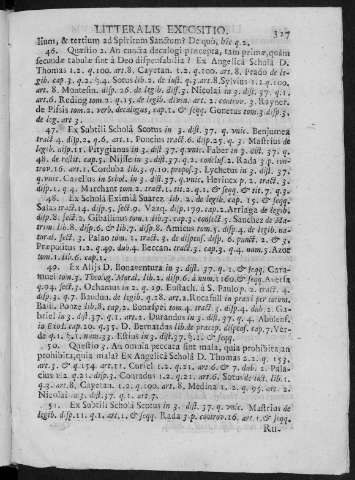 LITTERALIS EXPOSITIO. 327
lium, & tertium ad Spiritum Sanctum? De quo, hîc q. 2.
46. Quæstio 2. An cuncta decalogi præcepta, tam primæ, quàm
secundæ tabulæ sint à Deo dispensabilia? Ex Angelicâ Scholâ D.
Thomas 1. 2. q. 100. art. 8. Cayetan. 1. 2. q. 100. art. 8. Prado de le-
gib. cap. 3. q. 2. §. 4. Sotus lib. 2. de iust. q. 3. art. 8. Sylvius 1. 2. q. 100.
art. 8. Montesin. disp. 26. de legib. dub. 3. Nicolai in 3. dist. 37. q. 1.
art. 6. Reding tom. 2. q. 13. de legib. divin. art. 2. controv. 3. Rayner.
de Pisis tom. 2. verb. decalogus, cap. 1. & seqq. Gonetus tom. 3. disp. 3.
de leg. art. 3.
47. Ex Subtili Scholâ Scotus in 3. dist. 37. q. vnic. Benjumea
tract. 4. disp. 2. q. 6. art. 1. Poncius tract. 6. disp. 25. q. 3. Mastrius de
legib. disp. 11. Pitygianus in 3. dist. 37. q. vnic. Faber in 3. dist. 37. q.
48. de restit. cap. 5. Nijsse in 3. dist. 37. q. 2. conclus. 2. Rada 3. p. con-
trov. 16. art. 1. Corduba lib. 3. q. 10. propos. 3. Lychetus in 3. dist. 37.
q. vnic. Cavellus in Schol. in 3. dist. 37. q. vnic. Herincx p. 2. tract. 3.
disp. 1. q. 4. Marchant tom. 2. tract. 1. tit. 2. q. 1. & seqq. & tit. 7. q. 3.
48. Ex Scholâ Eximiâ Suarez lib. 2. de legib. cap. 15. & seqq.
Salas tract. 14. disp. 5. sect. 9. Vazq. disp. 179. cap. 2. Arriaga de legib.
disp. 8. sect. 2. Gibalinus tom. 1. lib. 3. cap. 3. consect. 3. Sanchez de Ma-
trim. lib. 8. disp. 6. & lib. 7. disp. 8. Amicus tom. 5. disp. 4. de legib. na-
tural. sect. 3. Palao tom. 1. tract. 3. de dispens. disp. 6. punct. 2. & 3.
Præpositus 1. 2. q. 49. dub. 4. Beccan. tract. 3. cap. 3. q. 4. num. 3. Azor
tom. 1. lib. 6. cap. 1.
49. Ex Alijs D. Bonaventura in 3. dist. 37. q. 2. & seqq. Cara-
muel tom. 3. Theolog. Moral. lib. 2. disp. 6. à num. 160. & seqq. Aversa
q. 94. sect. 3. Ochanus in 2. q. 19. Eustach. à S. Paulo p. 2. tract. 4.
disp. 3. q. 7. Baudun. de legib. q. 28. art. 2. Rocafull in praxi per totum.
Basil. Ponze lib. 8. cap. 2. Bonæspei tom. 4. tract. 3. disp. 4. dub. 2. Ga-
briel in 3. dist. 37. q. vnic. art. 2. Durandus in 3. dist. 37. q. 4. Abulens.
in Exod. cap. 20. q. 35. D. Bernardus lib. de præcep. dispens. cap. 7. Ver-
de q. 1. §. 1. num. 33. Estius in 3. dist. 37. §. 2. & seqq.
50. Quæstio 3. An omnia peccata sint mala, quia prohibita; an
prohibita, quia mala? Ex Angelicâ Scholâ D. Thomas 2. 2. q. 157.
art. 3. & q. 154. art. 11. Curiel 1. 2. q. 21. art. 6. & 7. dub. 2. Pala-
cius 1. 2. q. 21. disp. 3. Conradus 1. 2. q. 21. art. 6. Sotus de iust. lib. 1.
q. 3. art. 8. Cayetan. 1. 2. q. 100. art. 8. Medina 1. 2. q. 95. art. 2.
Nicolai in 3. dist. 37. q. 1. art. 7.
51. Ex Subtili Scholâ Scotus in 3. dist. 37. q. vnic. Mastrius de
legib. disp. 11. q. 1. art. 1. & seqq. Rada 3. p. controv. 16. art. 1. & seqq.
Ru-